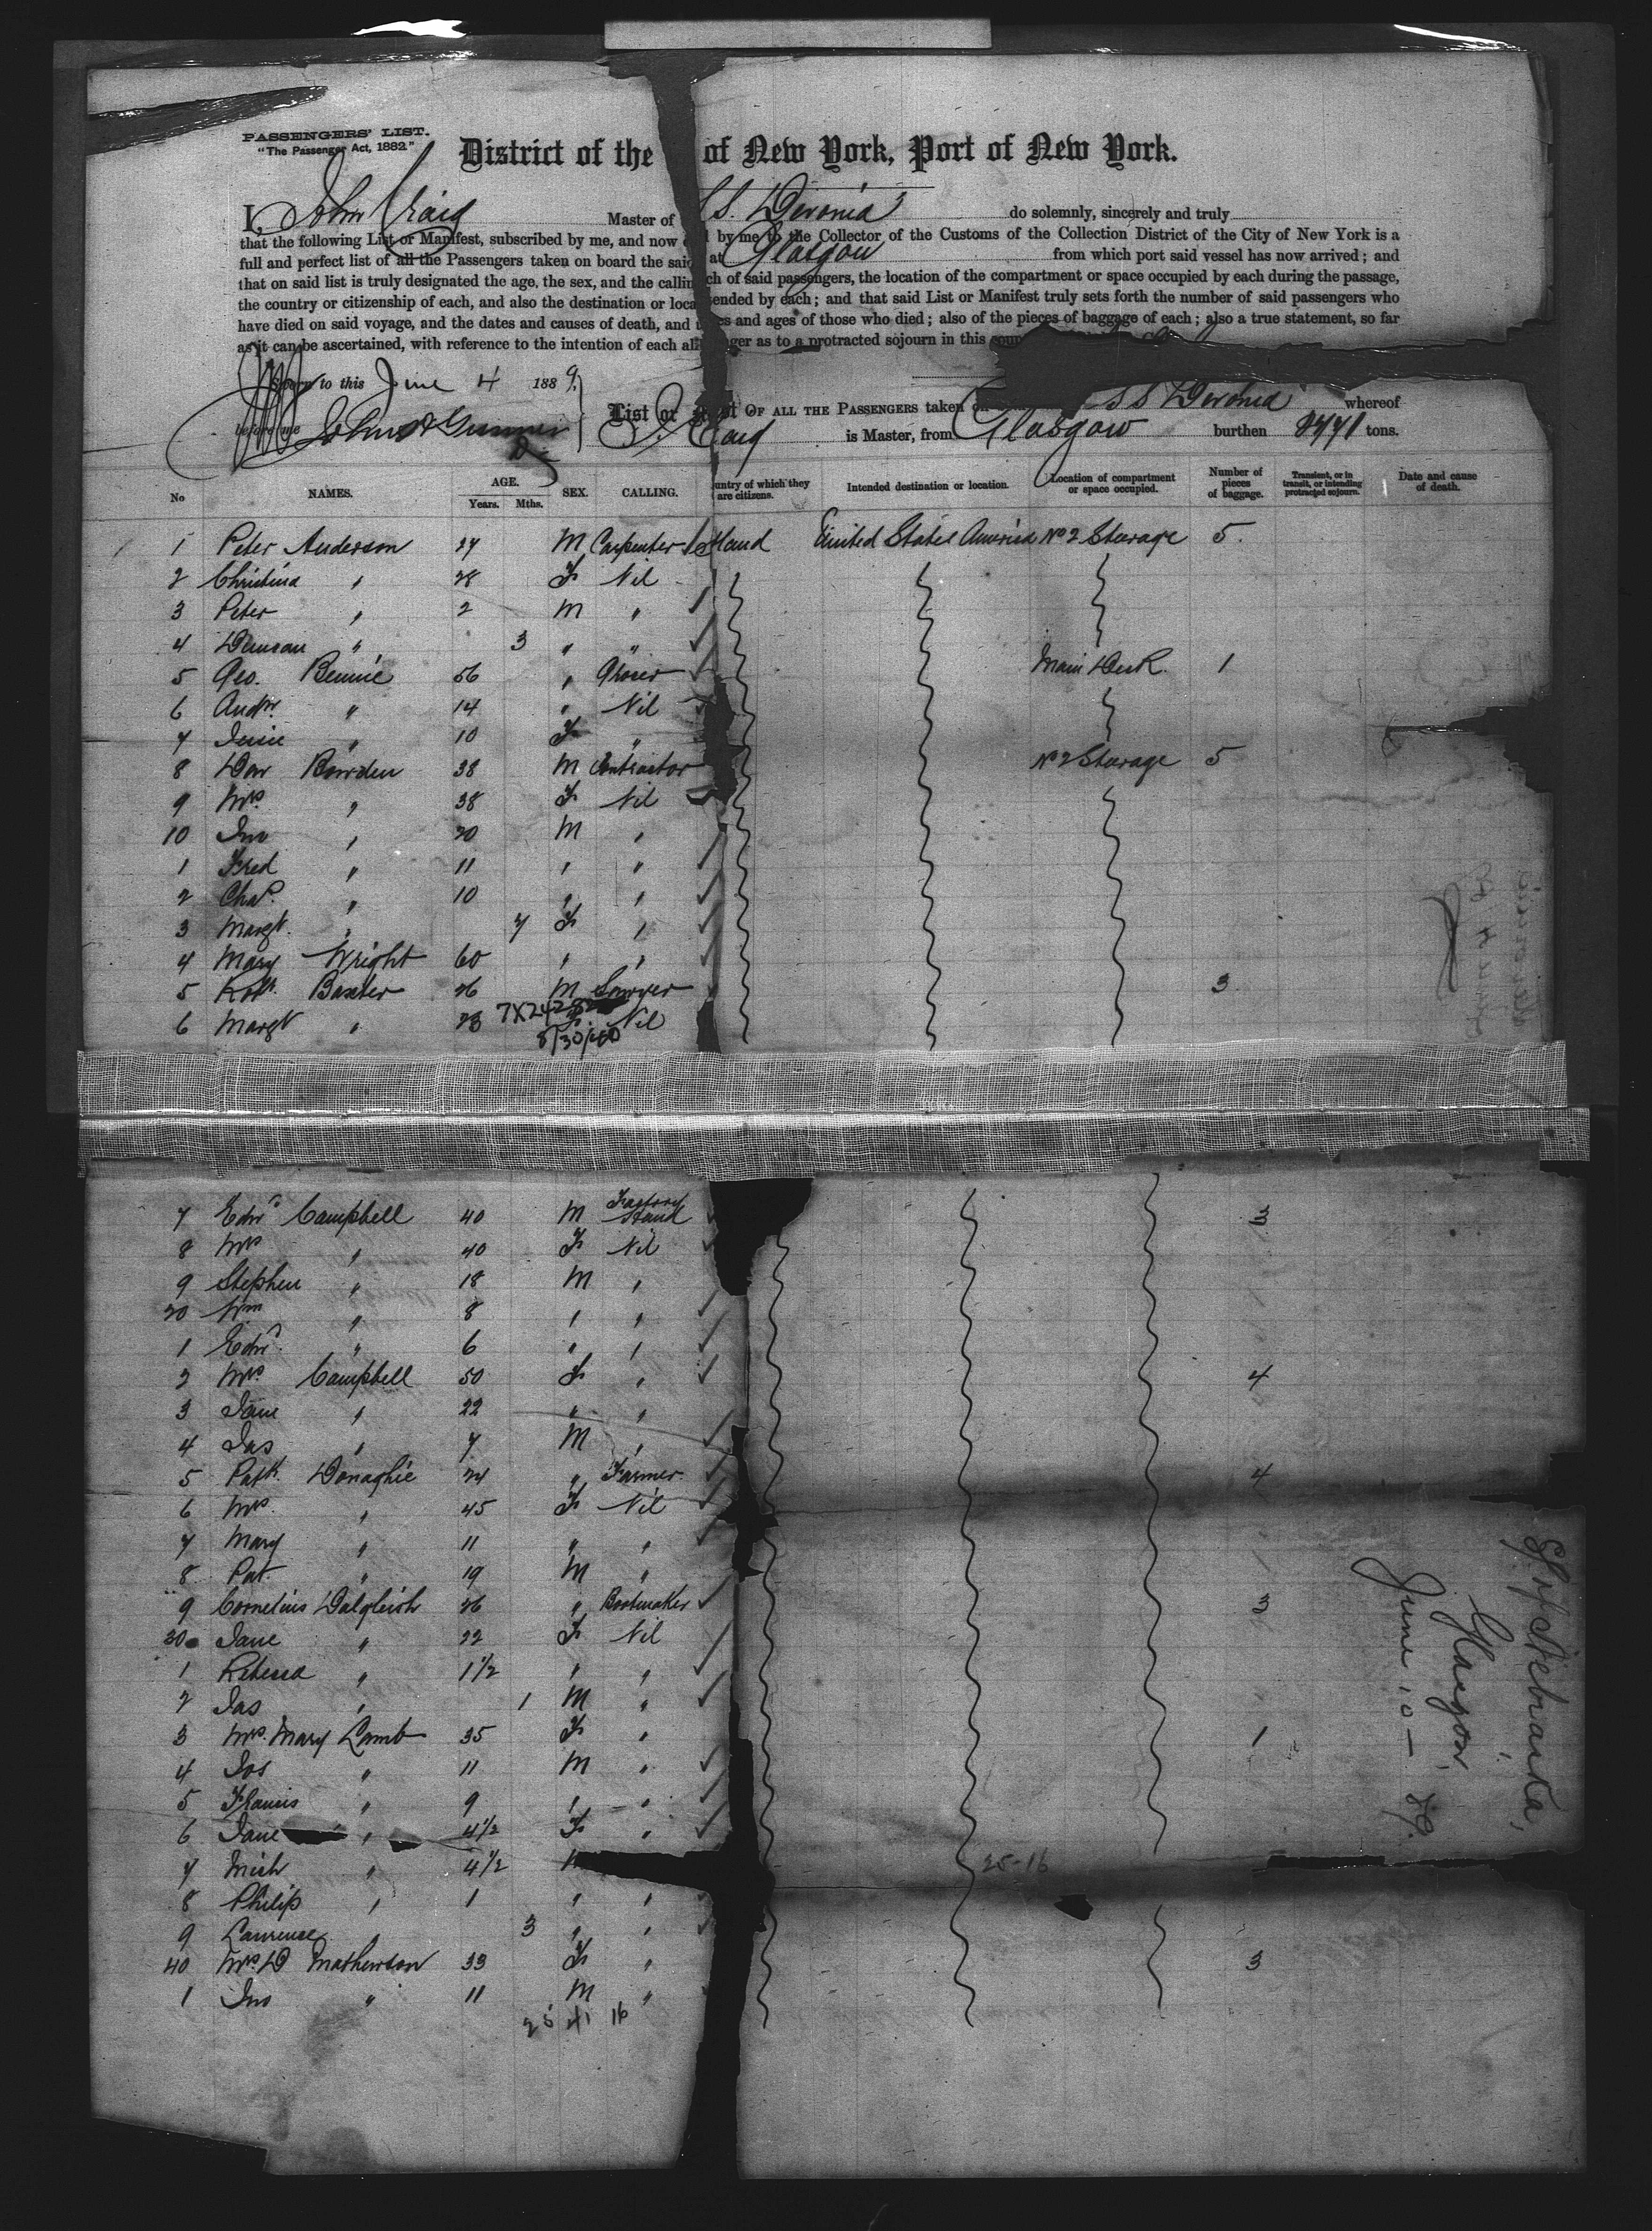 PASSENGERS' LIST.
"The Passenger Act, 1882"
District of the of New York, Port of New York.
I, John Craig Master of S.S. Devonia do solemnly, sincerely and truly
that the following List or Manifest, subscribed by me, and now by me to the Collector of the Customs of the Collection District of the City of New York is a
full and perfect list of all the Passengers taken on board the said at Glasgow from which port said vessel has now arrived; and
that on said list is truly designated the age, the sex, and the calling of said passengers, the location of the compartment or space occupied by each during the passage,
the country or citizenship of each, and also the destination or loca tended by each; and that said List or Manifest truly sets forth the number of said passengers who
have died on said voyage, and the dates and causes of death, and and ages of those who died; also of the pieces of baggage of each; also a true statement, so far
as it can be ascertained, with reference to the intention of each ali nger as to a protracted sojourn in this
Sworn to this June 4 1889
before me
List or OF ALL THE PASSENGERS taken S S Devonia whereof
J. Craig is Master, from Glasgow burthen tons.
No NAMES. AGE. Years. Mths. SEX. CALLING. untry of which they are citizens. Intended destination or location. Location of compartment or space occupied. Number of pieces of baggage. Transient, or in transit, or intending protracted sojourn. Date and cause of death.
1 Peter Anderson 27 M Carpenter United States America No 2 Steerage 5.
2 Christina " 28 F Nil
3 Peter " 2 M "
4 Duncan " 3 " "
5 Geo. Bennie 56 " Main Deck 1
6 Andw. " 14 " Nil
7 " 10 F "
8 Bowden 38 M Contractor No 2 Steerage 5
9 Mrs " 38 F Nil
10 Jno " 20 M "
1 Fred " 11 " "
2 Chas. " 10 " "
3 Margt. " 7 F "
4 Mary Wright 60 " "
5 Robt. Baxter 26 M Sawyer 3
6 Margt " 23 F Nil
7X2428
8/30/40
7 Edwd Campbell 40 M Factory Hand 3
8 Mrs " 40 F Nil
9 Stephen " 18 M "
20 Wm " 8 " "
1 Edwd. " 6 " "
2 Mrs Campbell 50 F " 4
3 Jane " 22 " "
4 Jas " 7 M "
5 Patk. Donaghie 24 " Farmer 4
6 Mrs. " 45 F Nil
7 Mary " 11 " "
8 Pat. " 19 M "
9 Cornelius Dalgleish 26 " Bootmaker 3
30 Jane " 22 F Nil
1 Rebecca " 1½ " "
2 Jas " 1 M "
3 Mrs. Mary Lamb 35 F " 1
4 Jos " 11 M "
5 Francis " 9 " "
6 Jane " 4½ F "
7 Mich " 4½
25-16
8 Philip " 1 " "
9 Laurence " 3 " "
40 Mrs. D Mathewson 33 F " 3
1 Jno " 11 M "
25 41 16
Nebraska,
Glasgow,
June 10 - 89.